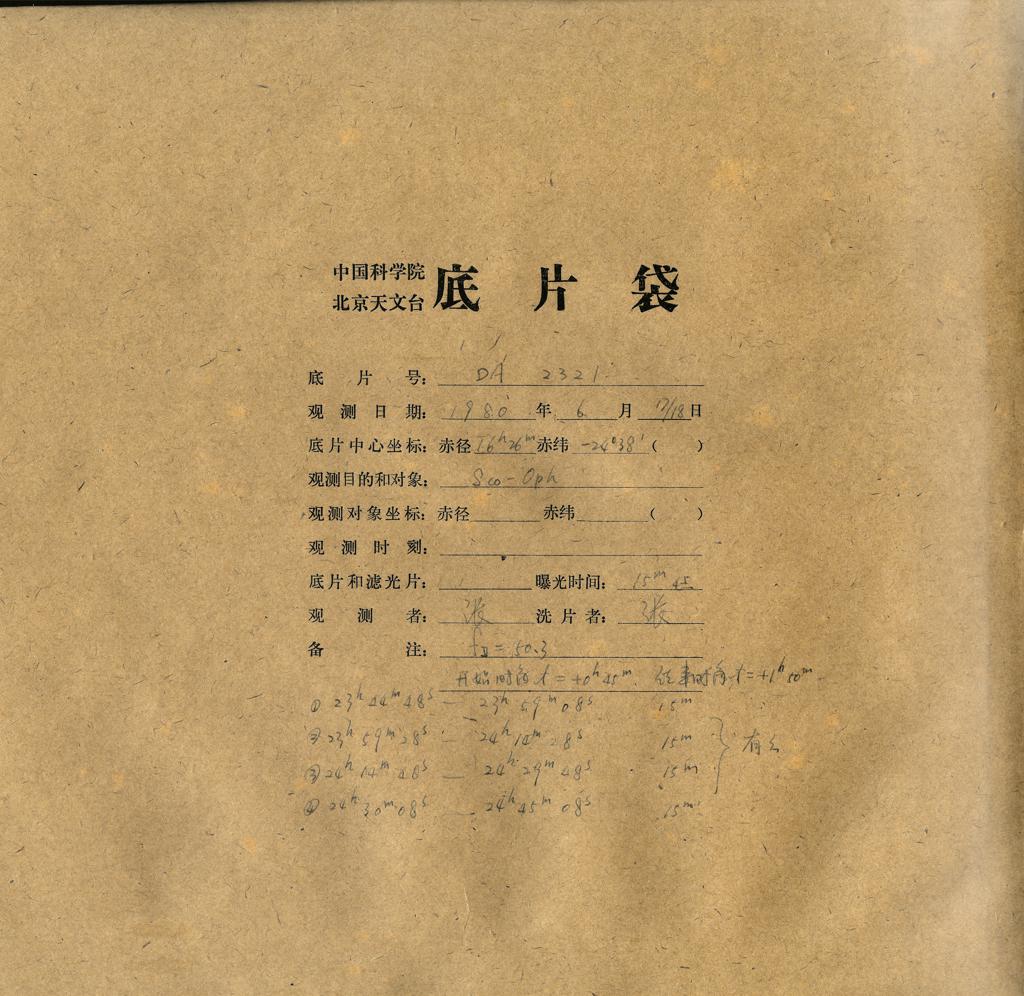 中国科学院
北京天文台
底片袋
底片号： DA 2321
观测日期： 1980年6月17/18日
底片中心坐标：赤径16ʰ26ᵐ赤纬 -24°38′（ ）
观测目的和对象： Sco-Oph
观测对象坐标：赤径 赤纬 （ ）
观测时刻：
底片和滤光片： 曝光时间： 15ᵐ
观测者： 张 洗片者： 张
备注： = 50.3
开始时角 t = +0ʰ45ᵐ. 结束时角 t = +1ʰ50ᵐ
① 23ʰ44ᵐ48ˢ — 23ʰ59ᵐ08ˢ 15ᵐ
② 23ʰ59ᵐ28ˢ — 24ʰ14ᵐ28ˢ 15ᵐ
③ 24ʰ14ᵐ48ˢ — 24ʰ29ᵐ48ˢ 15ᵐ
有云
④ 24ʰ30ᵐ08ˢ — 24ʰ45ᵐ08ˢ 15ᵐ